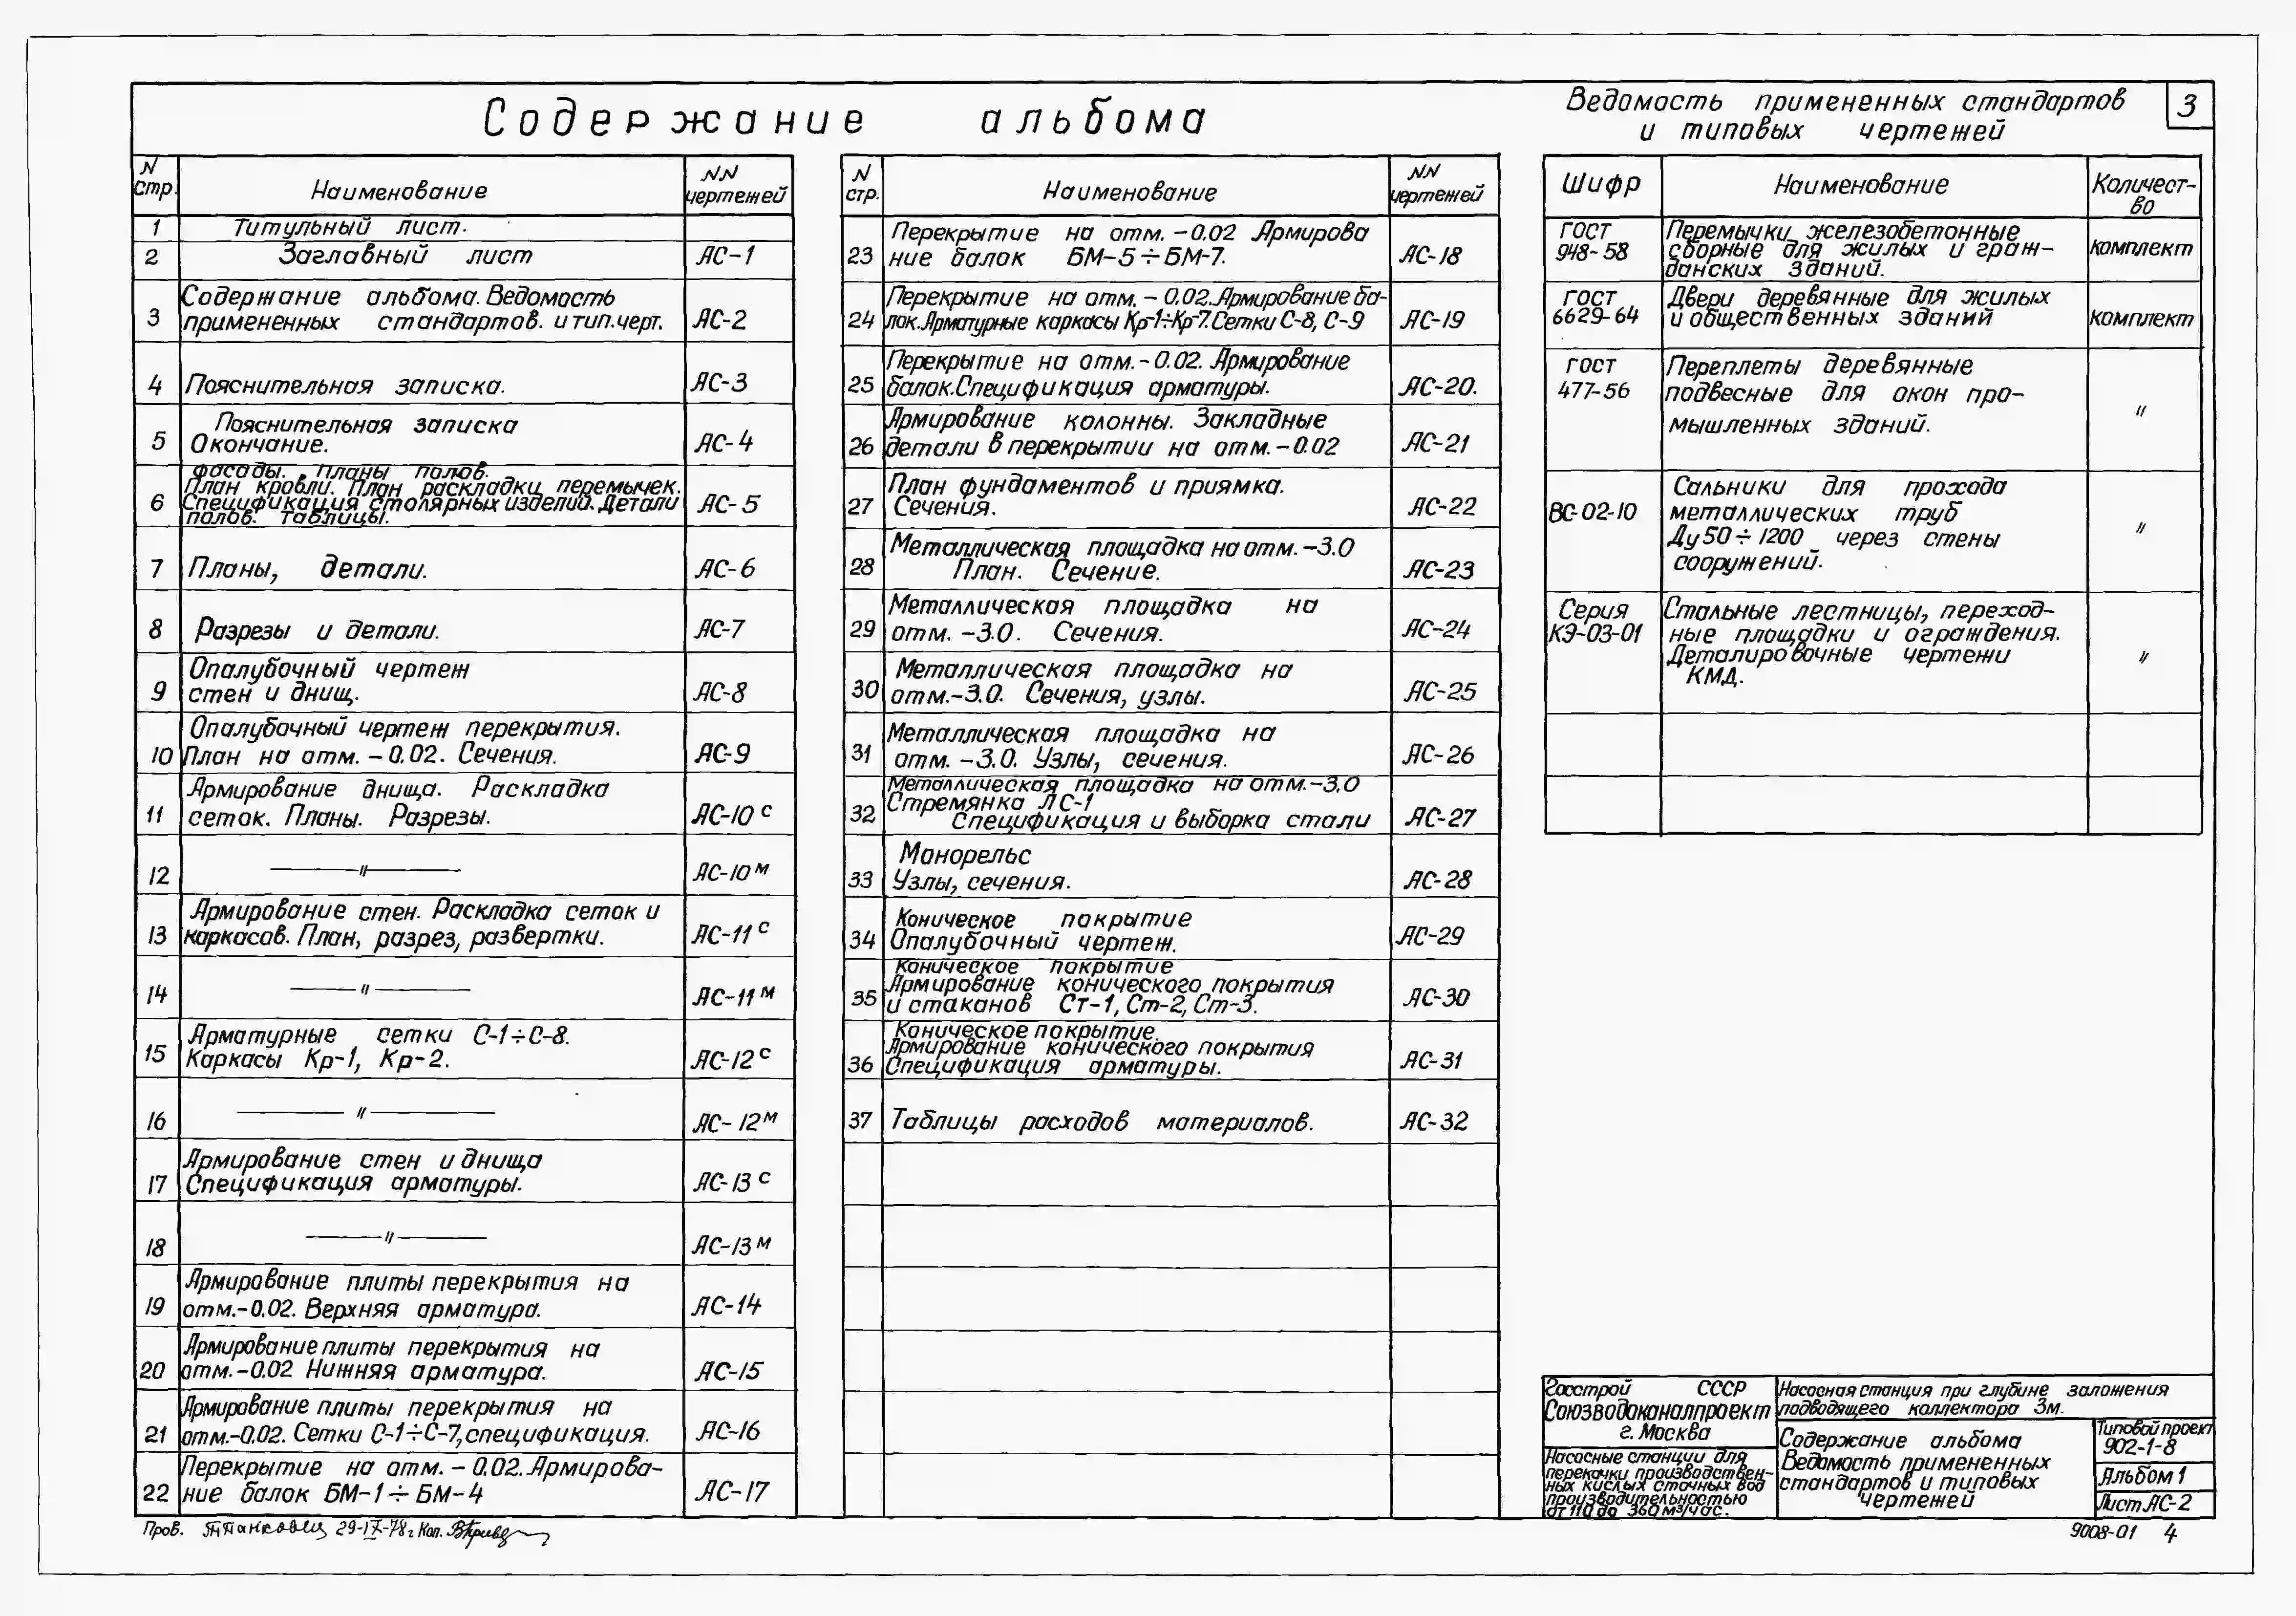 Содержание альбома
Ведомость примененных стандартов
и типовых чертежей
3
N
стр.
Наименование
NN
чертежей
1 Титульный лист.
2 Заглавный лист АС-1
Содержание альбома. Ведомость
3 примененных стандартов. и тип.черт. АС-2
4 Пояснительная записка. АС-3
Пояснительная записка
5 Окончание. АС-4
Фасады. Планы полов.
План кровли. План раскладки перемычек.
6 Спецификация столярных изделий. Детали АС-5
полов. Таблицы.
7 Планы, детали. АС-6
8 Разрезы и детали. АС-7
Опалубочный чертеж
9 стен и днищ. АС-8
Опалубочный чертеж перекрытия.
10 План на отм. -0.02. Сечения. АС-9
Армирование днища. Раскладка
11 сеток. Планы. Разрезы. АС-10с
12 —〃— АС-10м
Армирование стен. Раскладка сеток и
13 каркасов. План, разрез, развертки. АС-11с
14 —〃— АС-11м
Арматурные сетки С-1÷С-8.
15 Каркасы Кр-1, Кр-2. АС-12с
16 —〃— АС-12м
Армирование стен и днища
17 Спецификация арматуры. АС-13с
18 —〃— АС-13м
Армирование плиты перекрытия на
19 отм.-0.02. Верхняя арматура. АС-14
Армирование плиты перекрытия на
20 отм.-0.02 Нижняя арматура. АС-15
Армирование плиты перекрытия на
21 отм.-0.02. Сетки С-1÷С-7, спецификация. АС-16
Перекрытие на отм. -0.02. Армирова-
22 ние балок БМ-1÷БМ-4 АС-17
N
стр.
Наименование
NN
чертежей
Перекрытие на отм. -0.02 Армирова
23 ние балок БМ-5÷БМ-7. АС-18
Перекрытие на отм. -0.02. Армирование ба-
24 лок. Арматурные каркасы Кр-1÷Кр-7. Сетки С-8, С-9 АС-19
Перекрытие на отм.-0.02. Армирование
25 балок. Спецификация арматуры. АС-20.
Армирование колонны. Закладные
26 детали в перекрытии на отм.-0.02 АС-21
План фундаментов и приямка.
27 Сечения. АС-22
Металлическая площадка на отм.-3.0
28 План. Сечение. АС-23
Металлическая площадка на
29 отм. -3.0. Сечения. АС-24
Металлическая площадка на
30 отм.-3.0. Сечения, узлы. АС-25
Металлическая площадка на
31 отм. -3.0. Узлы, сечения. АС-26
Металлическая площадка на отм.-3.0
32 Стремянка ЛС-1
Спецификация и выборка стали АС-27
Монорельс
33 Узлы, сечения. АС-28
Коническое покрытие
34 Опалубочный чертеж. АС-29
Коническое покрытие
Армирование конического покрытия
35 и стаканов Ст-1, Ст-2, Ст-3. АС-30
Коническое покрытие.
Армирование конического покрытия
36 Спецификация арматуры. АС-31
37 Таблицы расходов материалов. АС-32
Шифр Наименование Количест-
во
ГОСТ Перемычки железобетонные
948-58 сборные для жилых и граж- комплект
данских зданий.
ГОСТ Двери деревянные для жилых
6629-64 и общественных зданий комплект
ГОСТ Переплеты деревянные
477-56 подвесные для окон про- 〃
мышленных зданий.
Сальники для прохода
ВС-02-10 металлических труб 〃
Ду50÷1200 через стены
сооружений.
Серия Стальные лестницы, переход-
КЭ-03-01 ные площадки и ограждения.
Деталировочные чертежи 〃
КМД.
Госстрой СССР
Союзводоканалпроект
г. Москва
Насосные станции для
перекачки производствен-
ных кислых сточных вод
производительностью
от 110 до 360 м³/час.
Насосная станция при глубине заложения
подводящего коллектора 3м.
Содержание альбома
Ведомость примененных
стандартов и типовых
чертежей
Типовой проект
902-1-8
Альбом 1
Лист АС-2
Пров. 29-IX-78г Коп.
9008-01 4